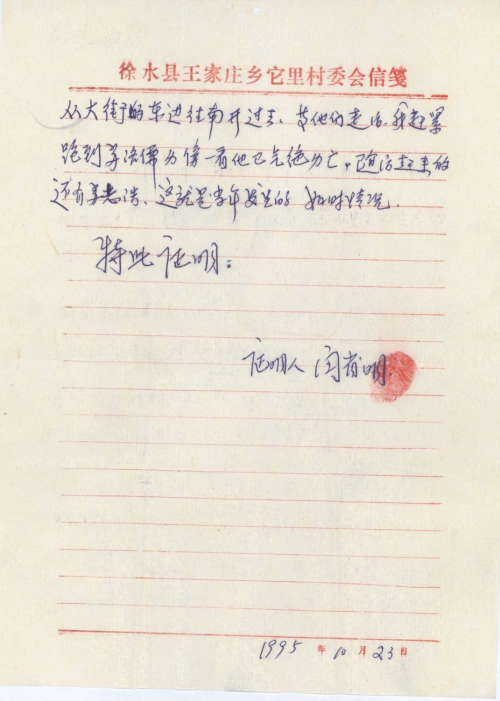 徐水县王家庄乡它里村委会信笺
从大街的东边往南开过去、等他们走后.我赶紧
跑到李洛 一看他已气绝身亡,随后赶来的
还有李老洪、这就是当年发生的 的情况.
特此证明:
证明人 闫肯明
1995年10月23日